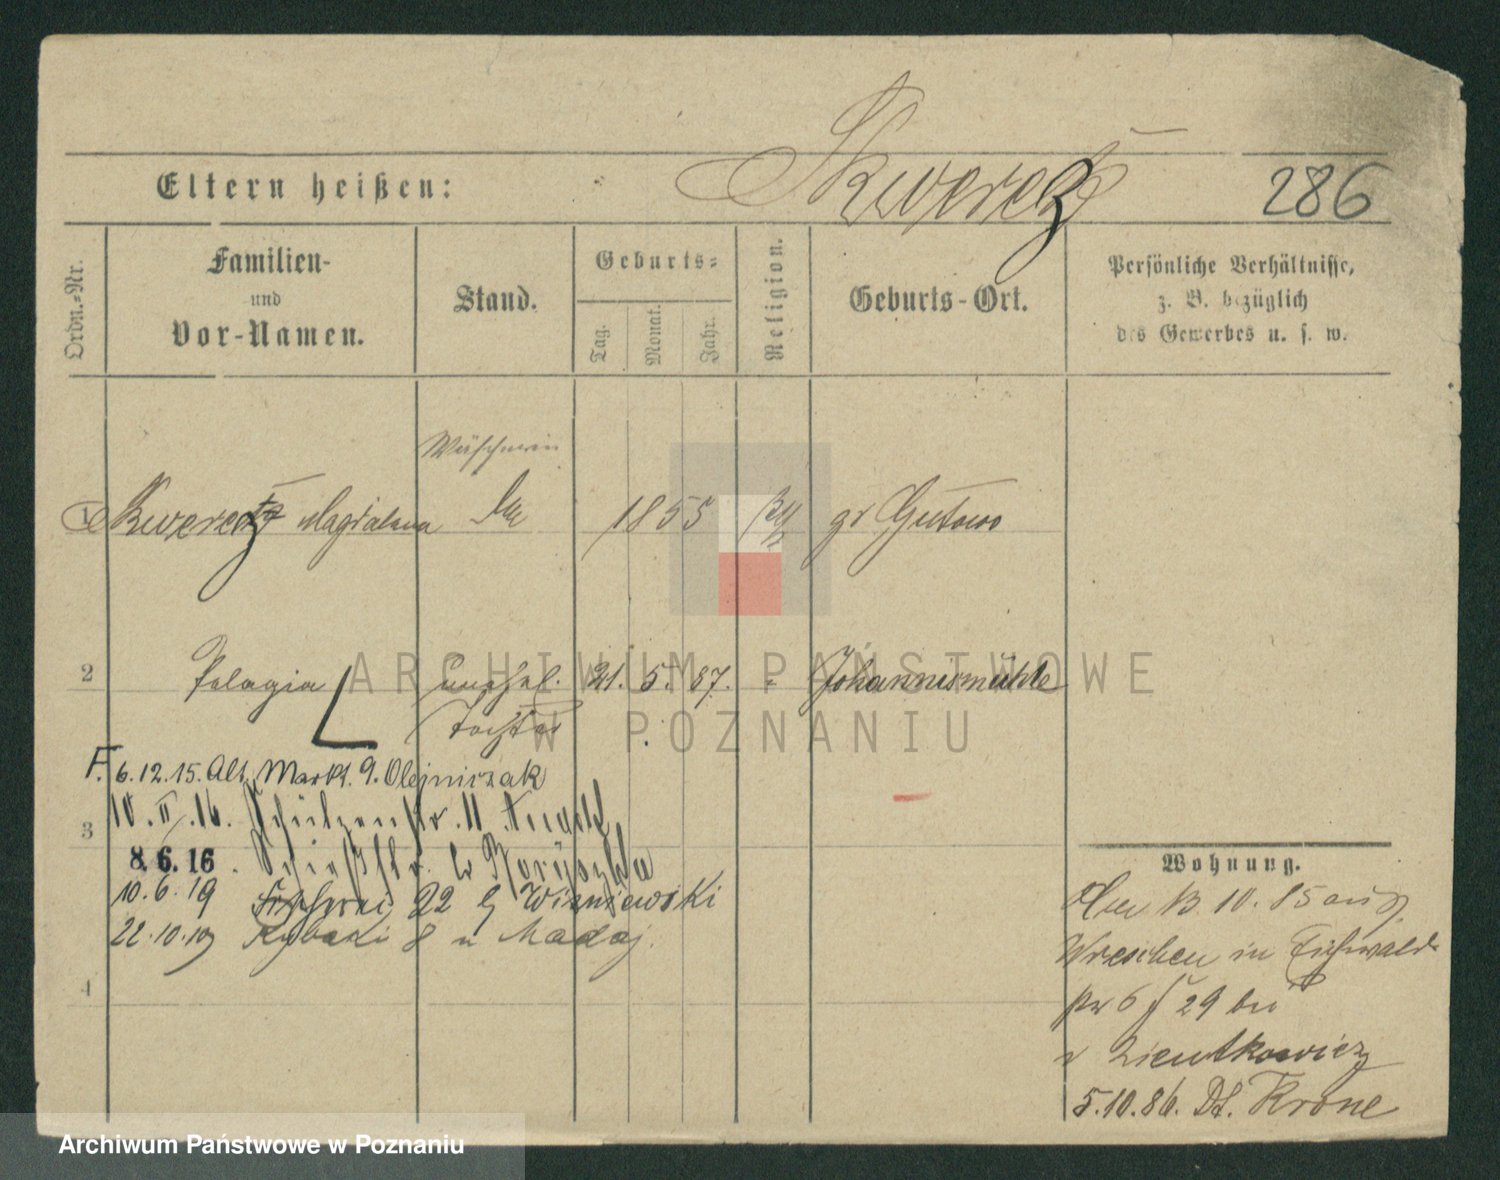 Skweres
286
Eltern heißen:
Ordn.=Nr.
Familien-
und
Vor-Namen.
Stand.
Geburts=
Tag.
Monat.
Jahr.
Religion.
Geburts-Ort.
Persönliche Verhältnisse,
z. B. bezüglich
des Gewerbes u. s. w.
Wäscherin
1 Magdalena 1855 gr Gutowo
2 Pelagia unehel. 21. 5. 87. - Johannismühle
Tochter
F. 6.12.15. Alt. Markt. 9. Olejniczak
10.II.16. Schützenstr. 11
3
8.6.16. Schießstr. 6
10.6.19 Fischerei 22 b Wiśniewski
22.10.19 Rybaki 8 u Madaj.
4
Wohnung.
13.10.85 aus
Wreschen in Eichwald
6 29 bei
Zientkowicz
5.10.86. Dt. Krone
ARCHIWUM PAŃSTWOWE
W POZNANIU
Archiwum Państwowe w Poznaniu